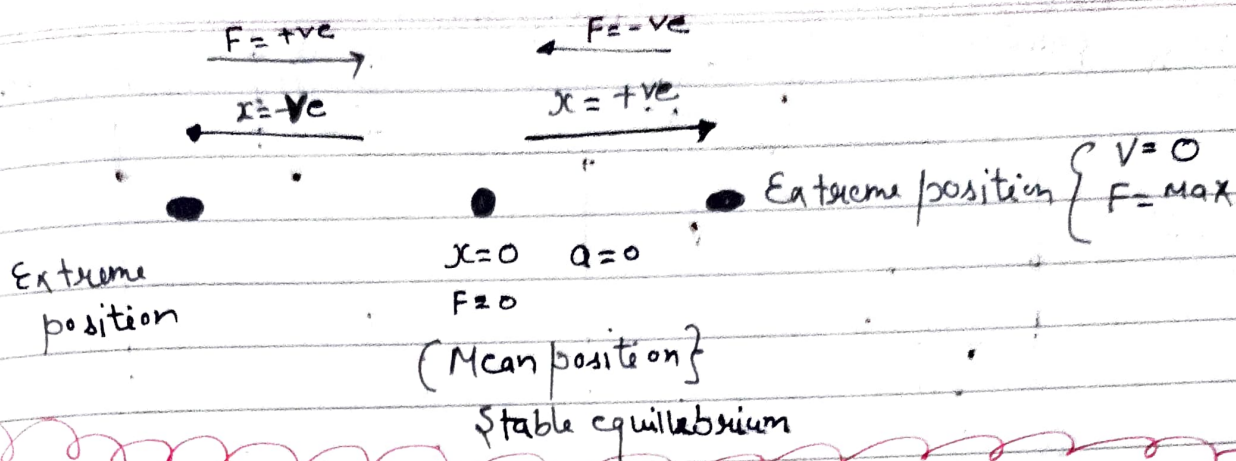 F = +ve
F = -ve
x = -Ve
x = +ve
Extreme position { V = 0
F = Max
x = 0 a = 0
Extreme
position
F = 0
(Mean position}
Stable equillebrium